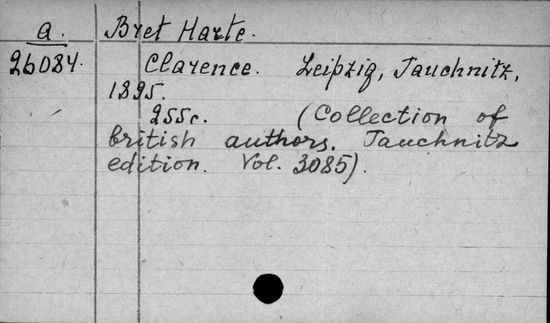 a. Bret Harte.
26084. Clarence. Leipzig, Tauchnitz,
1895.
255c. (Collection of
british authors. Tauchnitz
edition. Vol. 3085).